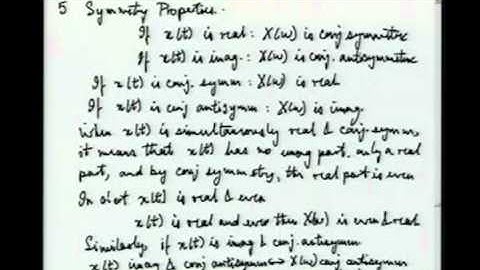 5 Symmetry Properties.
If x(t) is real : X(ω) is conj symmetric
If x(t) is imag. : X(ω) is conj. antisymmetric
If x(t) is conj. symm : X(ω) is real
If x(t) is conj antisymm : X(ω) is imag.
When x(t) is simultaneously real & conj-symm,
it means that x(t) has no imag part, only a real
part, and by conj symmetry, the real part is even
In short x(t) is real & even
x(t) is real and even then X(ω) is even & real
Similarly if x(t) is imag & conj. antisymm
x(t) imag & conj antisymm ↔ X(ω) conj antisymm